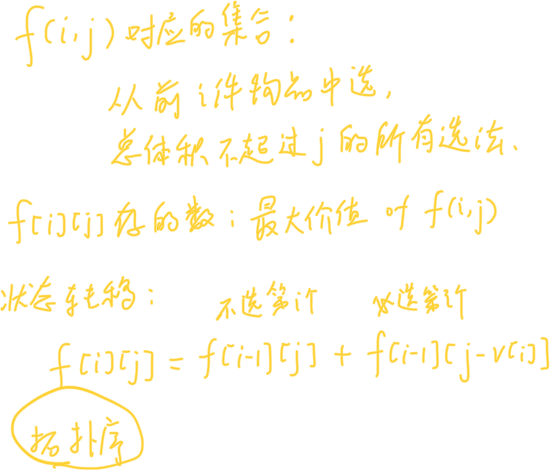 f(i,j)对应的集合：
从前i件物品中选，
总体积不超过j的所有选法.
f[i][j]存的数：最大价值 of f(i,j)
状态转移： 不选第i个 必选第i个
f[i][j] = f[i-1][j] + f[i-1][j-v[i]]
拓扑序